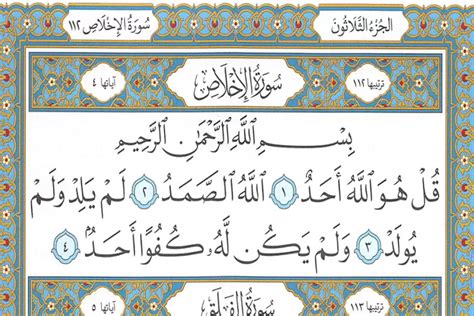 الجزء الثلاثون سورة الإخلاص ١١٢
ترتيبها ١١٢ سُورَةُ الإِخْلَاصِ آياتها ٤
بِسْمِ اللَّهِ الرَّحْمَٰنِ الرَّحِيمِ
قُلْ هُوَ اللَّهُ أَحَدٌ ١ اللَّهُ الصَّمَدُ ٢ لَمْ يَلِدْ وَلَمْ
يُولَدْ ٣ وَلَمْ يَكُن لَّهُ كُفُوًا أَحَدٌ ٤
ترتيبها ١١٣ سُورَةُ الفَلَقِ آياتها ٥